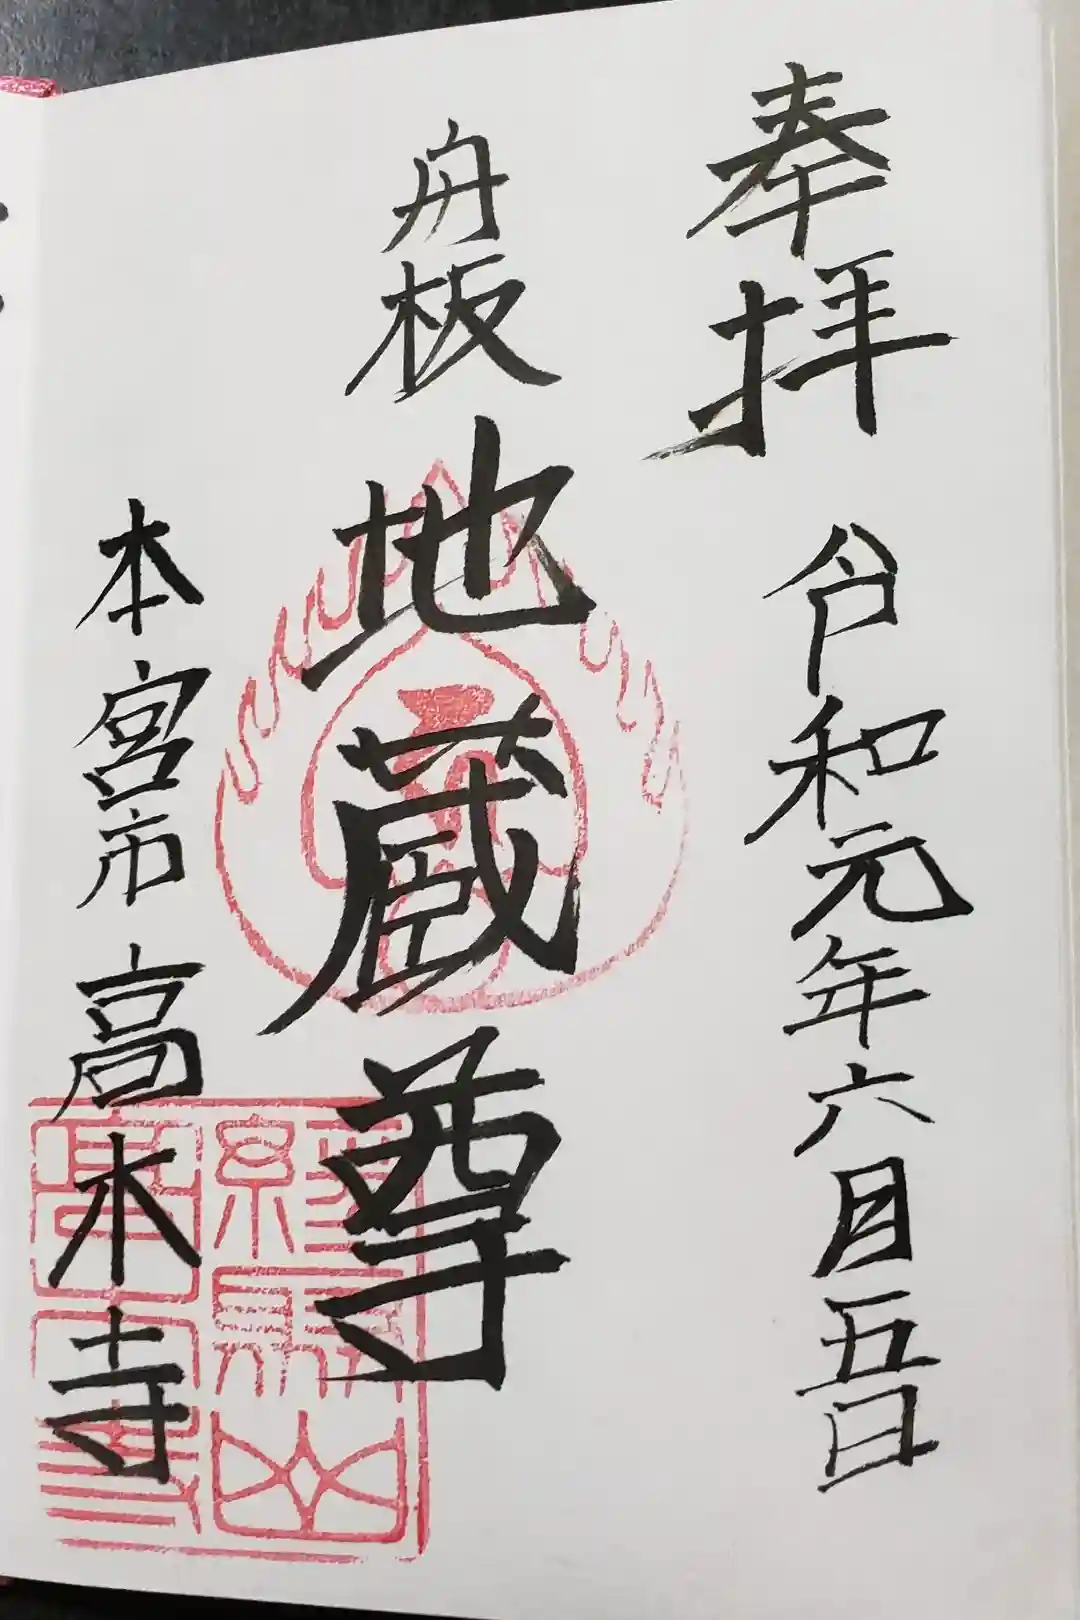 奉拝 令和元年六月五日
舟板 地蔵尊
本宮市 高木寺